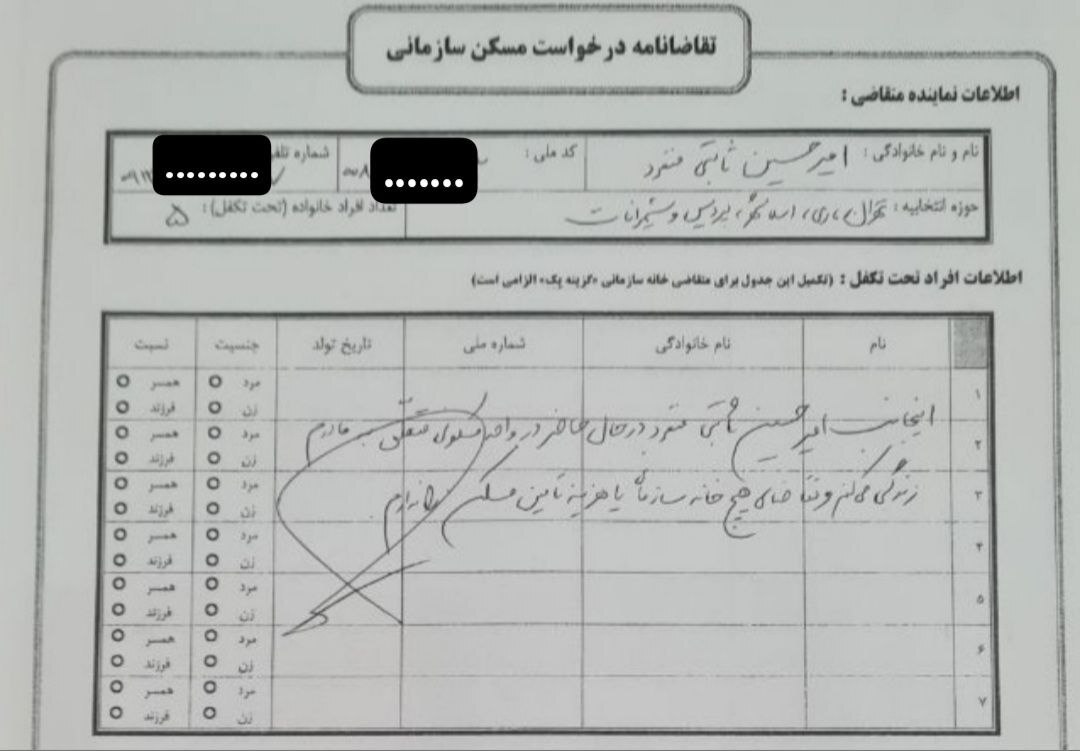 تقاضانامه درخواست مسکن سازمانی
اطلاعات نماینده متقاضی :
نام و نام خانوادگی : امیرحسین ثابتی منفرد
کد ملی : ۰۰۸
شماره تلفن ۰۹۱۲
حوزه انتخابیه : تهران، ری، اسلامشهر، پردیس و شمیرانات
تعداد افراد خانواده (تحت تکفل) : ۵
اطلاعات افراد تحت تکفل : (تکمیل این جدول برای متقاضی خانه سازمانی «گزینه یک» الزامی است)
نام نام خانوادگی شماره ملی تاریخ تولد جنسیت نسبت
۱ مرد همسر
زن فرزند
اینجانب امیرحسین ثابتی منفرد در حال حاضر در واحد مسکونی متعلق به مادرم
۲ مرد همسر
زن فرزند
زندگی می‌کنم و تقاضای هیچ خانه سازمانی یا هزینه تامین مسکن را ندارم
۳ مرد همسر
زن فرزند
۴ مرد همسر
زن فرزند
۵ مرد همسر
زن فرزند
۶ مرد همسر
زن فرزند
۷ مرد همسر
زن فرزند